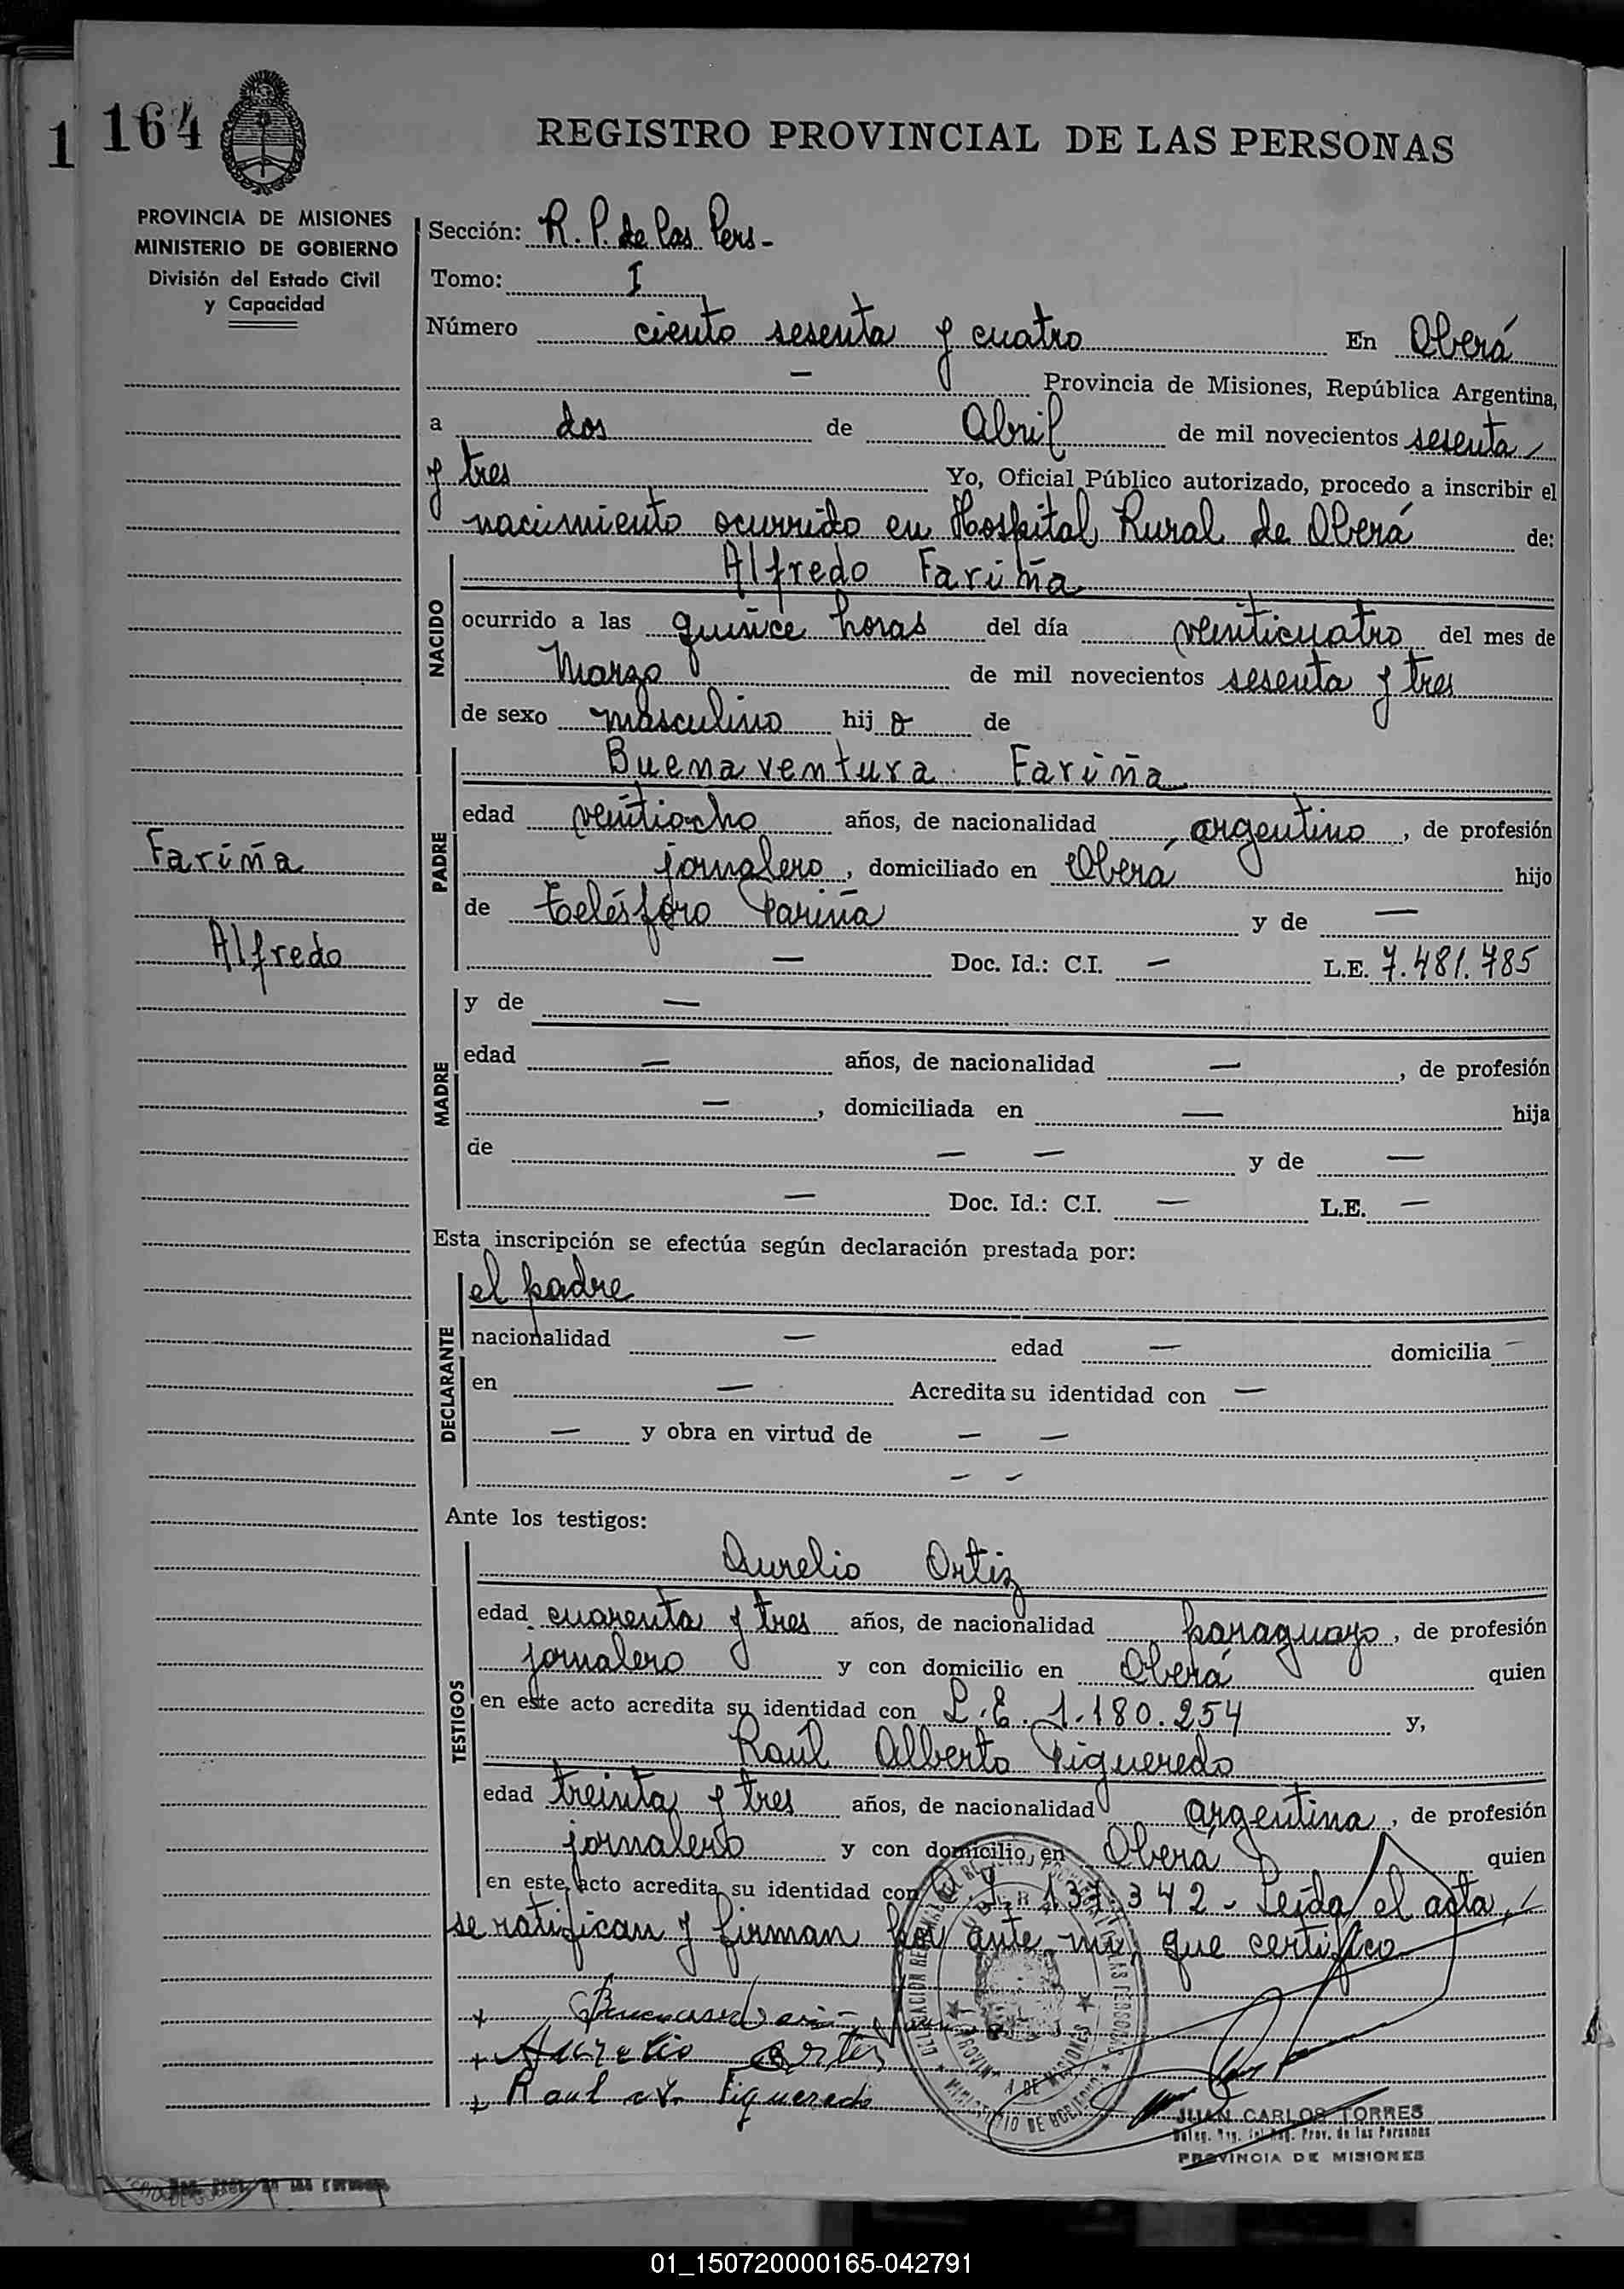 1
164
REGISTRO PROVINCIAL DE LAS PERSONAS
PROVINCIA DE MISIONES
MINISTERIO DE GOBIERNO
División del Estado Civil
y Capacidad
Sección: R. P. de las Pers-
Tomo: I
Número ciento sesenta y cuatro En Oberá
— Provincia de Misiones, República Argentina,
a dos de Abril de mil novecientos sesenta
y tres Yo, Oficial Público autorizado, procedo a inscribir el
nacimiento ocurrido en Hospital Rural de Oberá de:
NACIDO
Alfredo Fariña
ocurrido a las quince horas del día veinticuatro del mes de
Marzo de mil novecientos sesenta y tres
de sexo masculino hijo de
PADRE
Buenaventura Fariña
edad veintiocho años, de nacionalidad argentino, de profesión
Fariña
jornalero, domiciliado en Oberá hijo
de Telésforo Fariña y de —
Alfredo
— Doc. Id.: C.I. — L.E. 7.481.785
MADRE
y de —
edad — años, de nacionalidad —, de profesión
—, domiciliada en — hija
de — — y de —
— Doc. Id.: C.I. — L.E. —
Esta inscripción se efectúa según declaración prestada por:
DECLARANTE
el padre
nacionalidad — edad — domicilia —
en — Acredita su identidad con —
— y obra en virtud de — —
— —
Ante los testigos:
TESTIGOS
Aurelio Ortiz
edad cuarenta y tres años, de nacionalidad paraguayo, de profesión
jornalero y con domicilio en Oberá quien
en este acto acredita su identidad con L.E. 1.180.254 y,
Raúl Alberto Figueredo
edad treinta y tres años, de nacionalidad argentina, de profesión
jornalero y con domicilio en Oberá quien
en este acto acredita su identidad con 342 - Leída el acta,
se ratifican y firman por ante mí, que certifico
+
+ Aurelio Ortiz
+ Raul A. Figueredo
JUAN CARLOS TORRES
Prov. de las Personas
PROVINCIA DE MISIONES
01_150720000165-042791